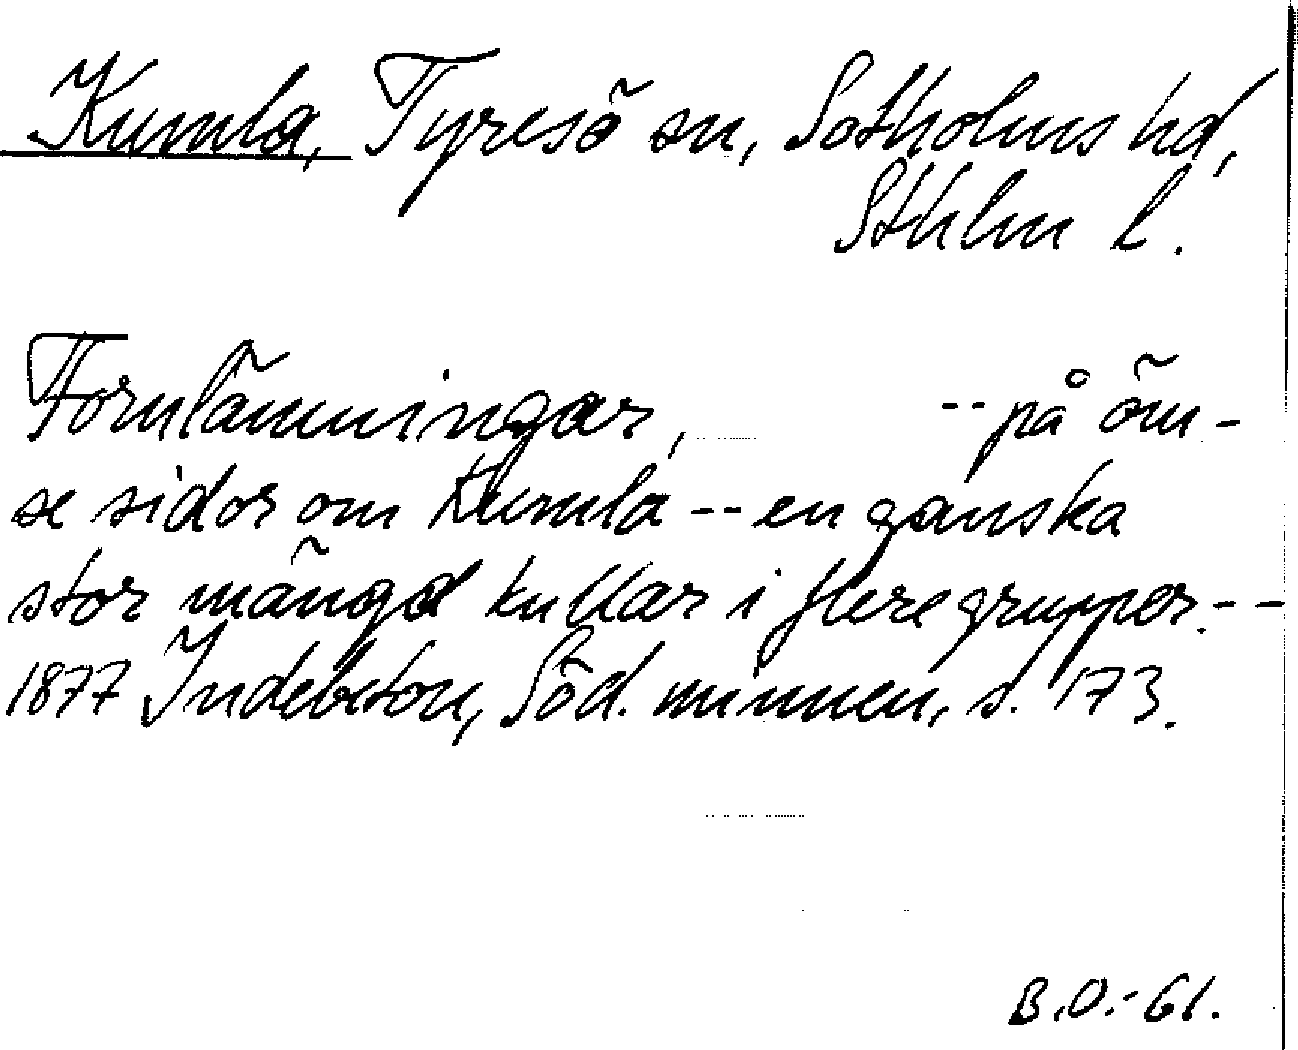 Kumla, Tyresö sn, Sotholms hd,
Sthlm l.
Fornlämningar, -- på öm-
se sidor om Kumla -- en ganska
stor mängd kullar i flere grupper. --
1877 Indebetou, Söd. minnen, s. 173.
B.O.-61.